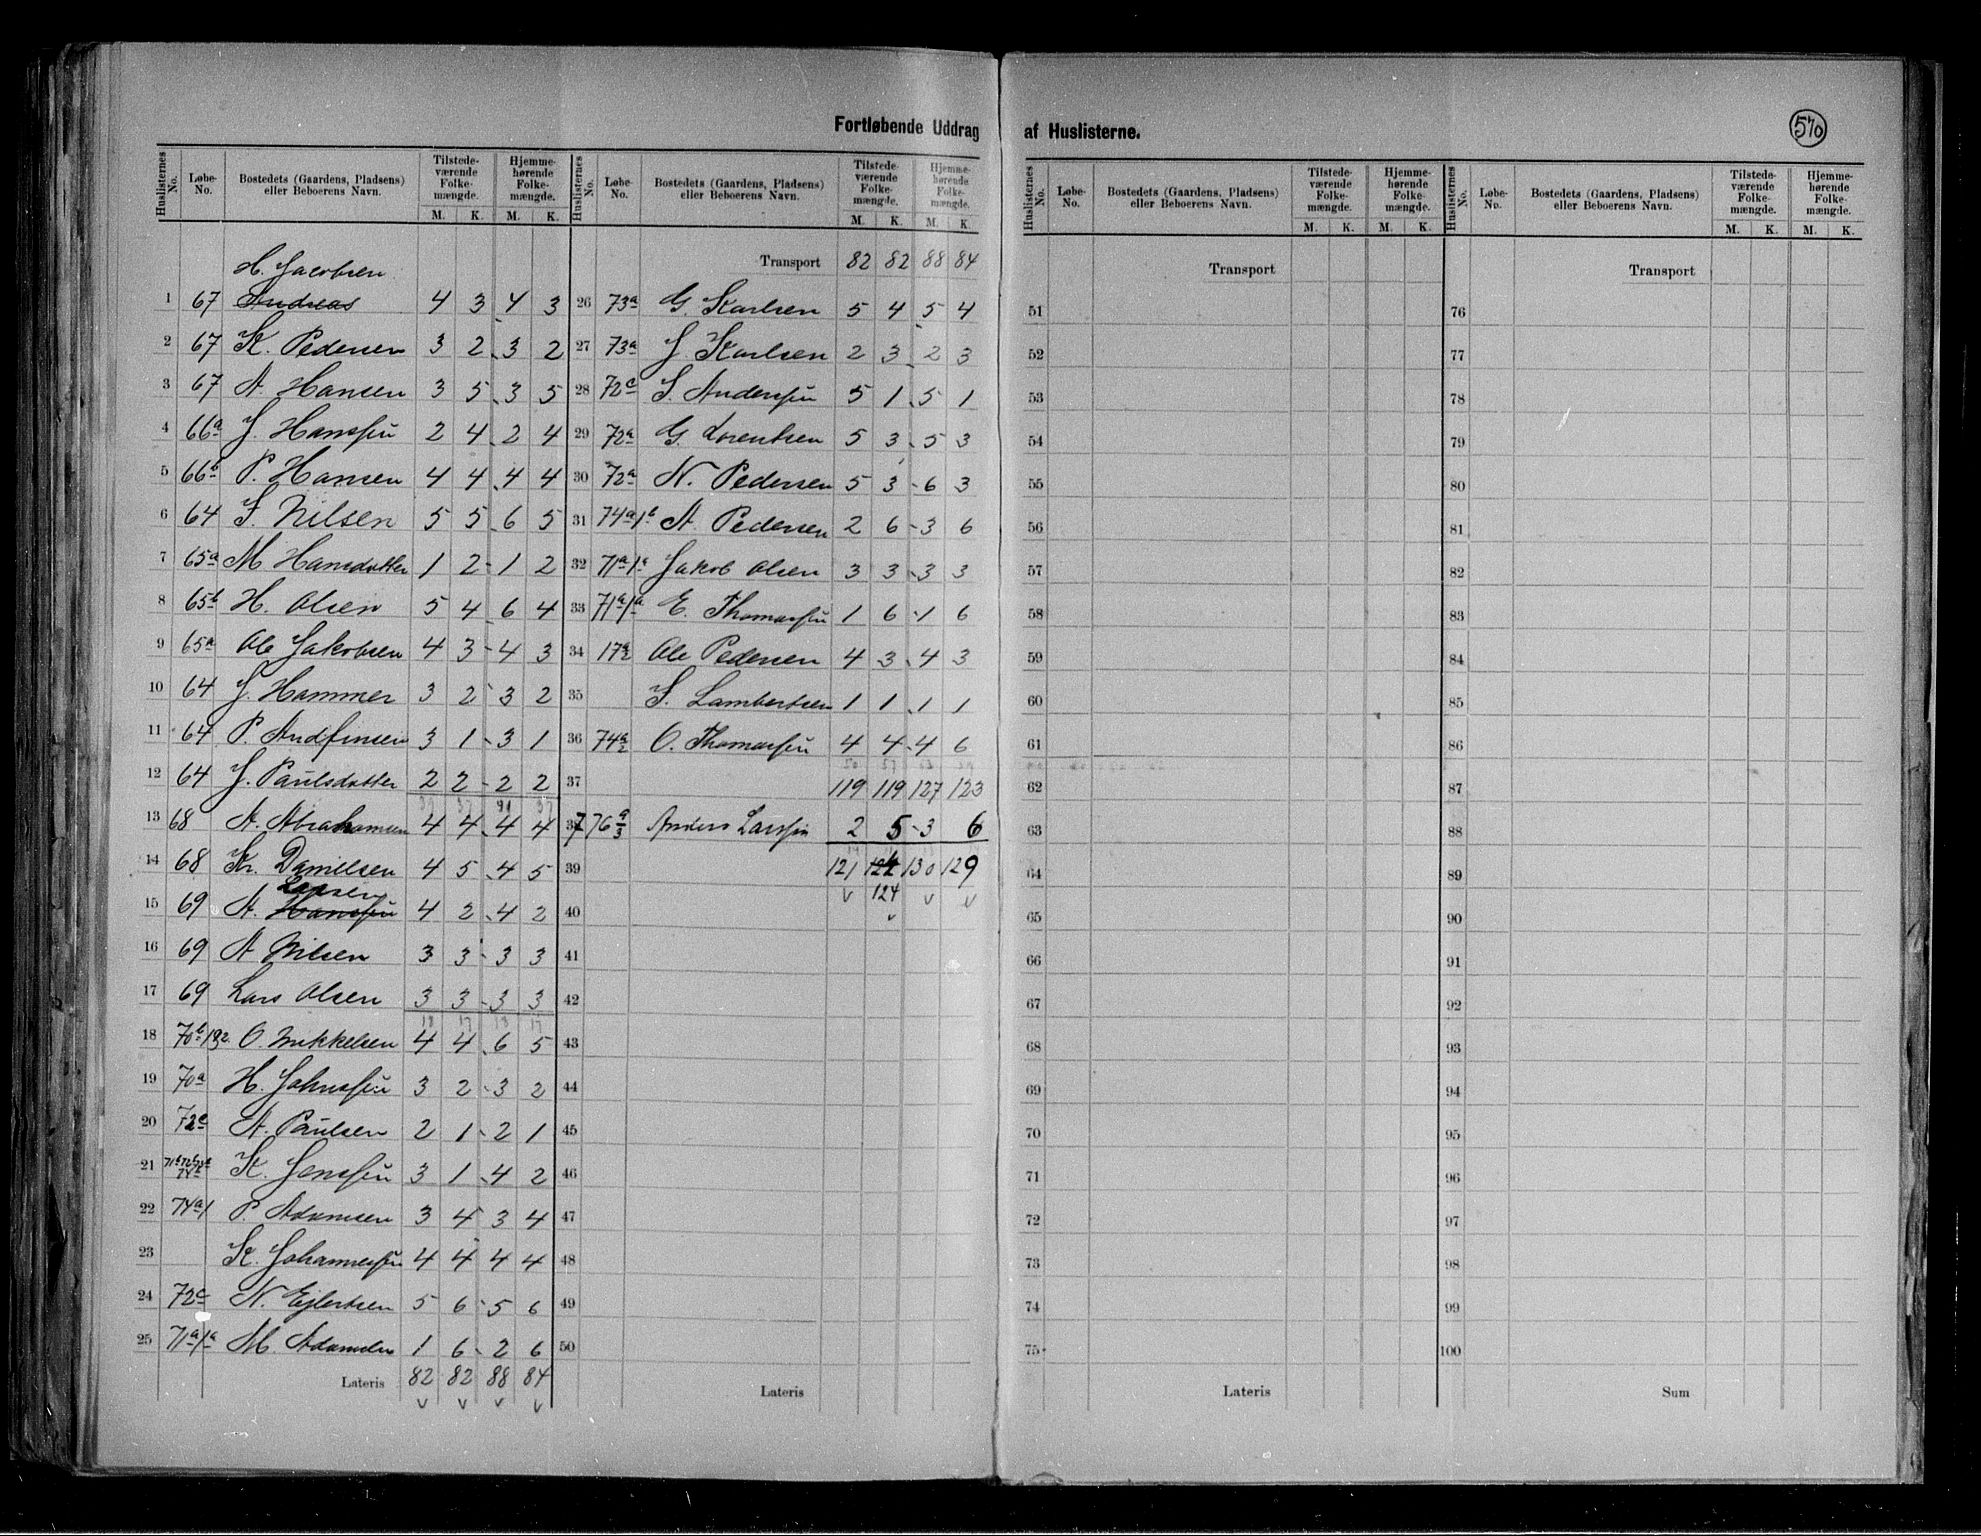 Fortløbende Uddrag af Huslisterne.
570
Huslisternes No. Løbe-No. Bostedets (Gaardens, Pladsens) eller Beboerens Navn. Tilstedeværende Folkemængde. M. K. Hjemmehørende Folkemængde. M. K.
H. Jacobsen
1 67 Andreas 4 3 4 3
2 67 K. Pedersen 3 2 3 2
3 67 A. Hansen 3 5 3 5
4 66a J. Hanssen 2 4 2 4
5 66b P. Hansen 4 4 4 4
6 64 S. Nilsen 5 5 6 5
7 65a M Hansdatter 1 2 1 2
8 65b H. Olsen 5 4 6 4
9 65a Ole Jakobsen 4 3 4 3
10 64 J. Hammer 3 2 3 2
11 64 P. Andfinsen 3 1 3 1
12 64 J. Paulsdatter 2 2 2 2
13 68 A. Abrahamsen 4 4 4 4
14 68 Kr. Danielsen 4 5 4 5
Larsen
15 69 A. Hanssen 4 2 4 2
16 69 A Nilsen 3 3 3 3
17 69 Lars Olsen 3 3 3 3
18 70b/1&2 O. Mikkelsen 4 4 6 5
19 70a H. Johnssen 3 2 3 2
20 72c A. Paulsen 2 1 2 1
21 K. Jenssen 3 1 4 2
22 74a/1 P. Adamsen 3 4 3 4
23 K. Johannessen 4 4 4 4
24 72c N. Ejlertsen 5 6 5 6
25 71a/1a M. Adamsen 1 6 2 6
Lateris 82 82 88 84
Huslisternes No. Løbe-No. Bostedets (Gaardens, Pladsens) eller Beboerens Navn. Tilstedeværende Folkemængde. M. K. Hjemmehørende Folkemængde. M. K.
Transport 82 82 88 84
26 73a G. Karlsen 5 4 5 4
27 73a J. Karlsen 2 3 2 3
28 72c S. Anderssen 5 1 5 1
29 72a G. Lorentsen 5 3 5 3
30 72a N. Pedersen 5 3 6 3
31 74a/1b A. Pedersen 2 6 3 6
32 71a/1a Jakob Olsen 3 3 3 3
33 71a/1a E. Thomassen 1 6 1 6
34 17a/2 Ole Pedersen 4 3 4 3
35 S. Lambertsen 1 1 1 1
36 74a/2 O. Thomassen 4 4 4 6
37 119 119 127 123
37 76a/3 Anders Larssen 2 5 3 6
39 121 124 130 129
124
40
41
42
43
44
45
46
47
48
49
50
Lateris
Huslisternes No. Løbe-No. Bostedets (Gaardens, Pladsens) eller Beboerens Navn. Tilstedeværende Folkemængde. M. K. Hjemmehørende Folkemængde. M. K.
Transport
51
52
53
54
55
56
57
58
59
60
61
62
63
64
65
66
67
68
69
70
71
72
73
74
75
Lateris
Huslisternes No. Løbe-No. Bostedets (Gaardens, Pladsens) eller Beboerens Navn. Tilstedeværende Folkemængde. M. K. Hjemmehørende Folkemængde. M. K.
Transport
76
77
78
79
80
81
82
83
84
85
86
87
88
89
90
91
92
93
94
95
96
97
98
99
100
Sum